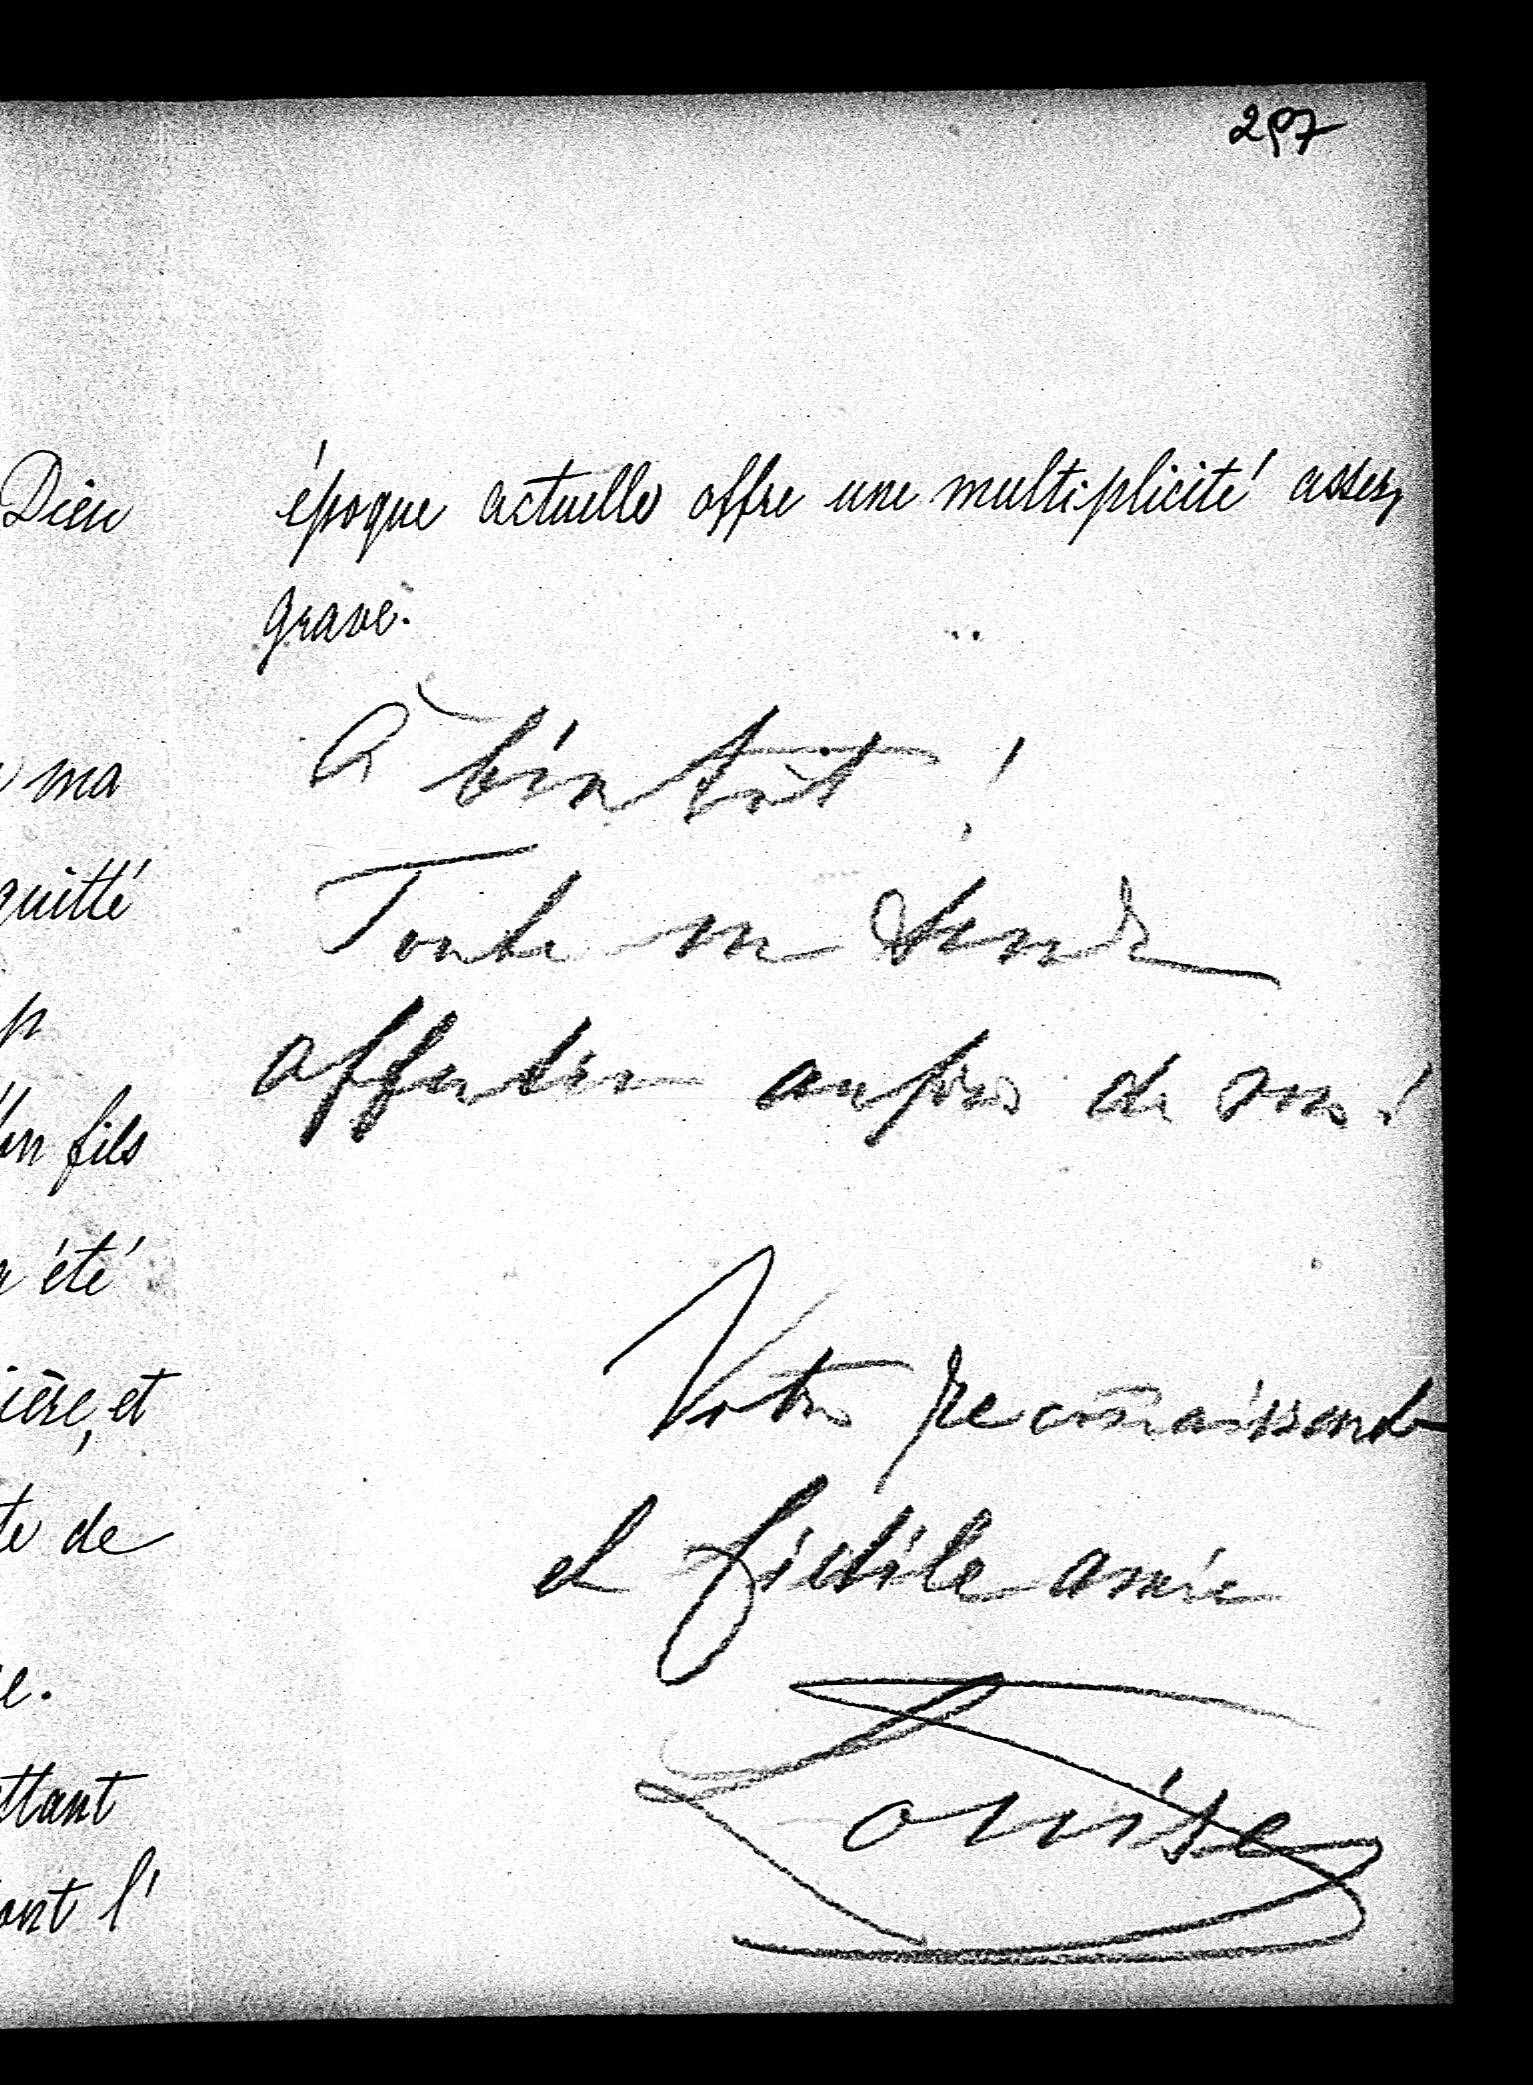 297
époque actuelle offre une multiplicité assez
grave.
À bientôt !
Toute ma tendre
affection auprès de vous !
Votre reconnaissante
et fidèle amie
Louise
Dieu
ma
quitté
p
fils
été
ière, et
de
e.
ettant
ont l'